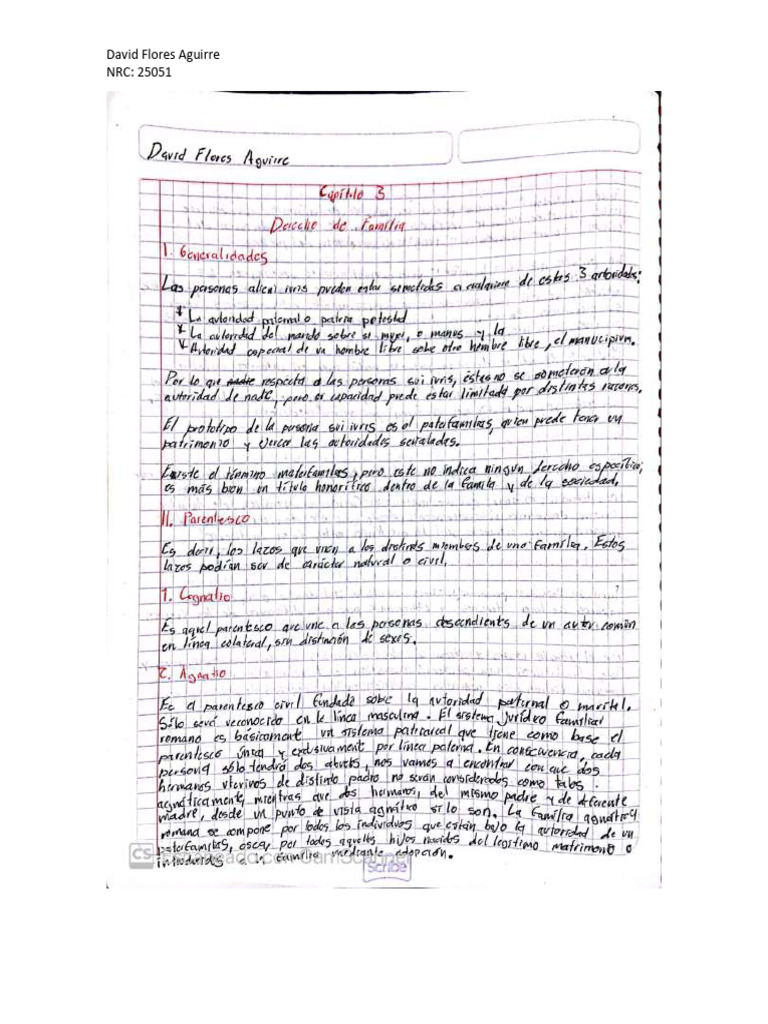 David Flores Aguirre
NRC: 25051
David Flores Aguirre
Capítulo 3
Derecho de Familia
I. Generalidades
Las personas alieni iuris pueden estar sometidas a cualquiera de estas 3 autoridades:
* La autoridad paternal o patria potestad
* La autoridad del marido sobre su mujer, o manus y la
* Autoridad especial de un hombre libre sobre otro hombre libre, el mancipium.
Por lo que respecta a las personas sui iuris, éstas no se someterán a la
autoridad de nadie, pero su capacidad puede estar limitada por distintas razones.
El prototipo de la persona sui iuris es el paterfamilias, quien puede tener un
patrimonio y ejercer las autoridades señaladas.
Existe el término materfamilias, pero este no indica ningún derecho específico;
es más bien un título honorífico dentro de la familia y de la sociedad.
II. Parentesco
Es decir, los lazos que unen a los distintos miembros de una familia. Estos
lazos podían ser de carácter natural o civil.
1. Cognatio
Es aquel parentesco que une a las personas descendientes de un autor común
en línea colateral, sin distinción de sexos.
2. Agnatio
Es el parentesco civil fundado sobre la autoridad paternal o marital.
Sólo será reconocido en la línea masculina. El sistema jurídico familiar
romano es básicamente un sistema patriarcal que tiene como base el
parentesco única y exclusivamente por línea paterna. En consecuencia, cada
persona sólo tendrá dos abuelos, nos vamos a encontrar con que dos
hermanos uterinos de distinto padre no serán considerados como tales
agnáticamente, mientras que dos hermanos, del mismo padre y de diferente
madre, desde un punto de vista agnático sí lo son. La familia agnática
romana se compone por todos los individuos que están bajo la autoridad de un
paterfamilias, o sea, por todos aquellos hijos nacidos del legítimo matrimonio o
introducidos a la familia mediante adopción.
CS
CamScanner
scribe